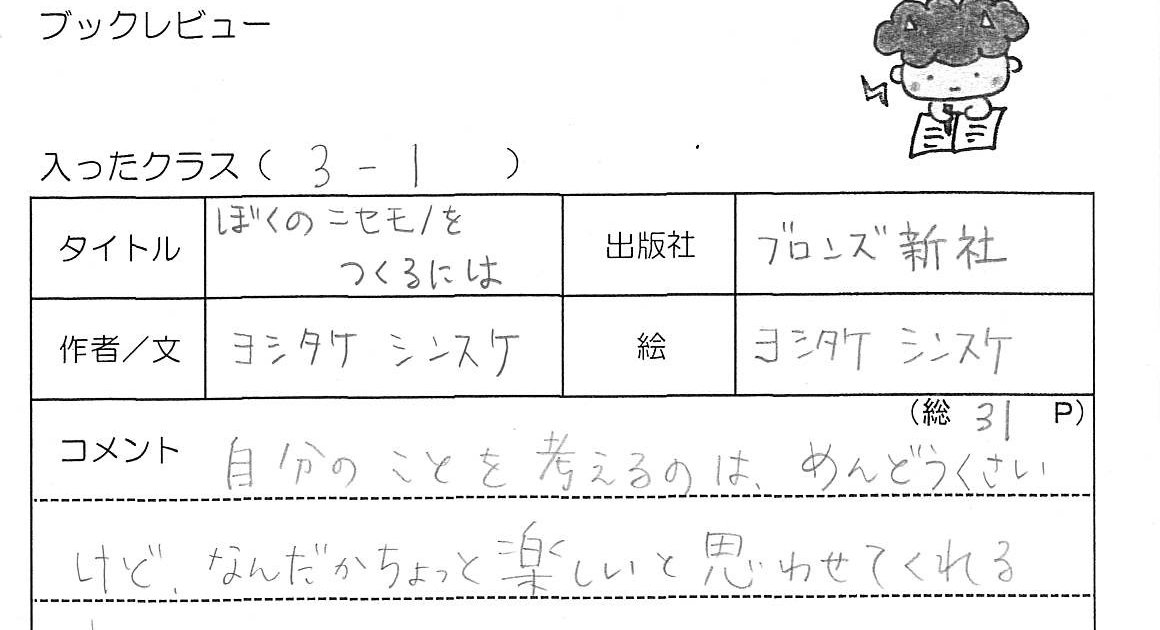 ブックレビュー
入ったクラス( 3-1 )
タイトル ぼくのニセモノを
つくるには
出版社 ブロンズ新社
作者/文 ヨシタケ シンスケ 絵 ヨシタケ シンスケ
(総 31 P)
コメント 自分のことを考えるのは、めんどうくさい
けど、なんだかちょっと楽しいと思わせてくれる